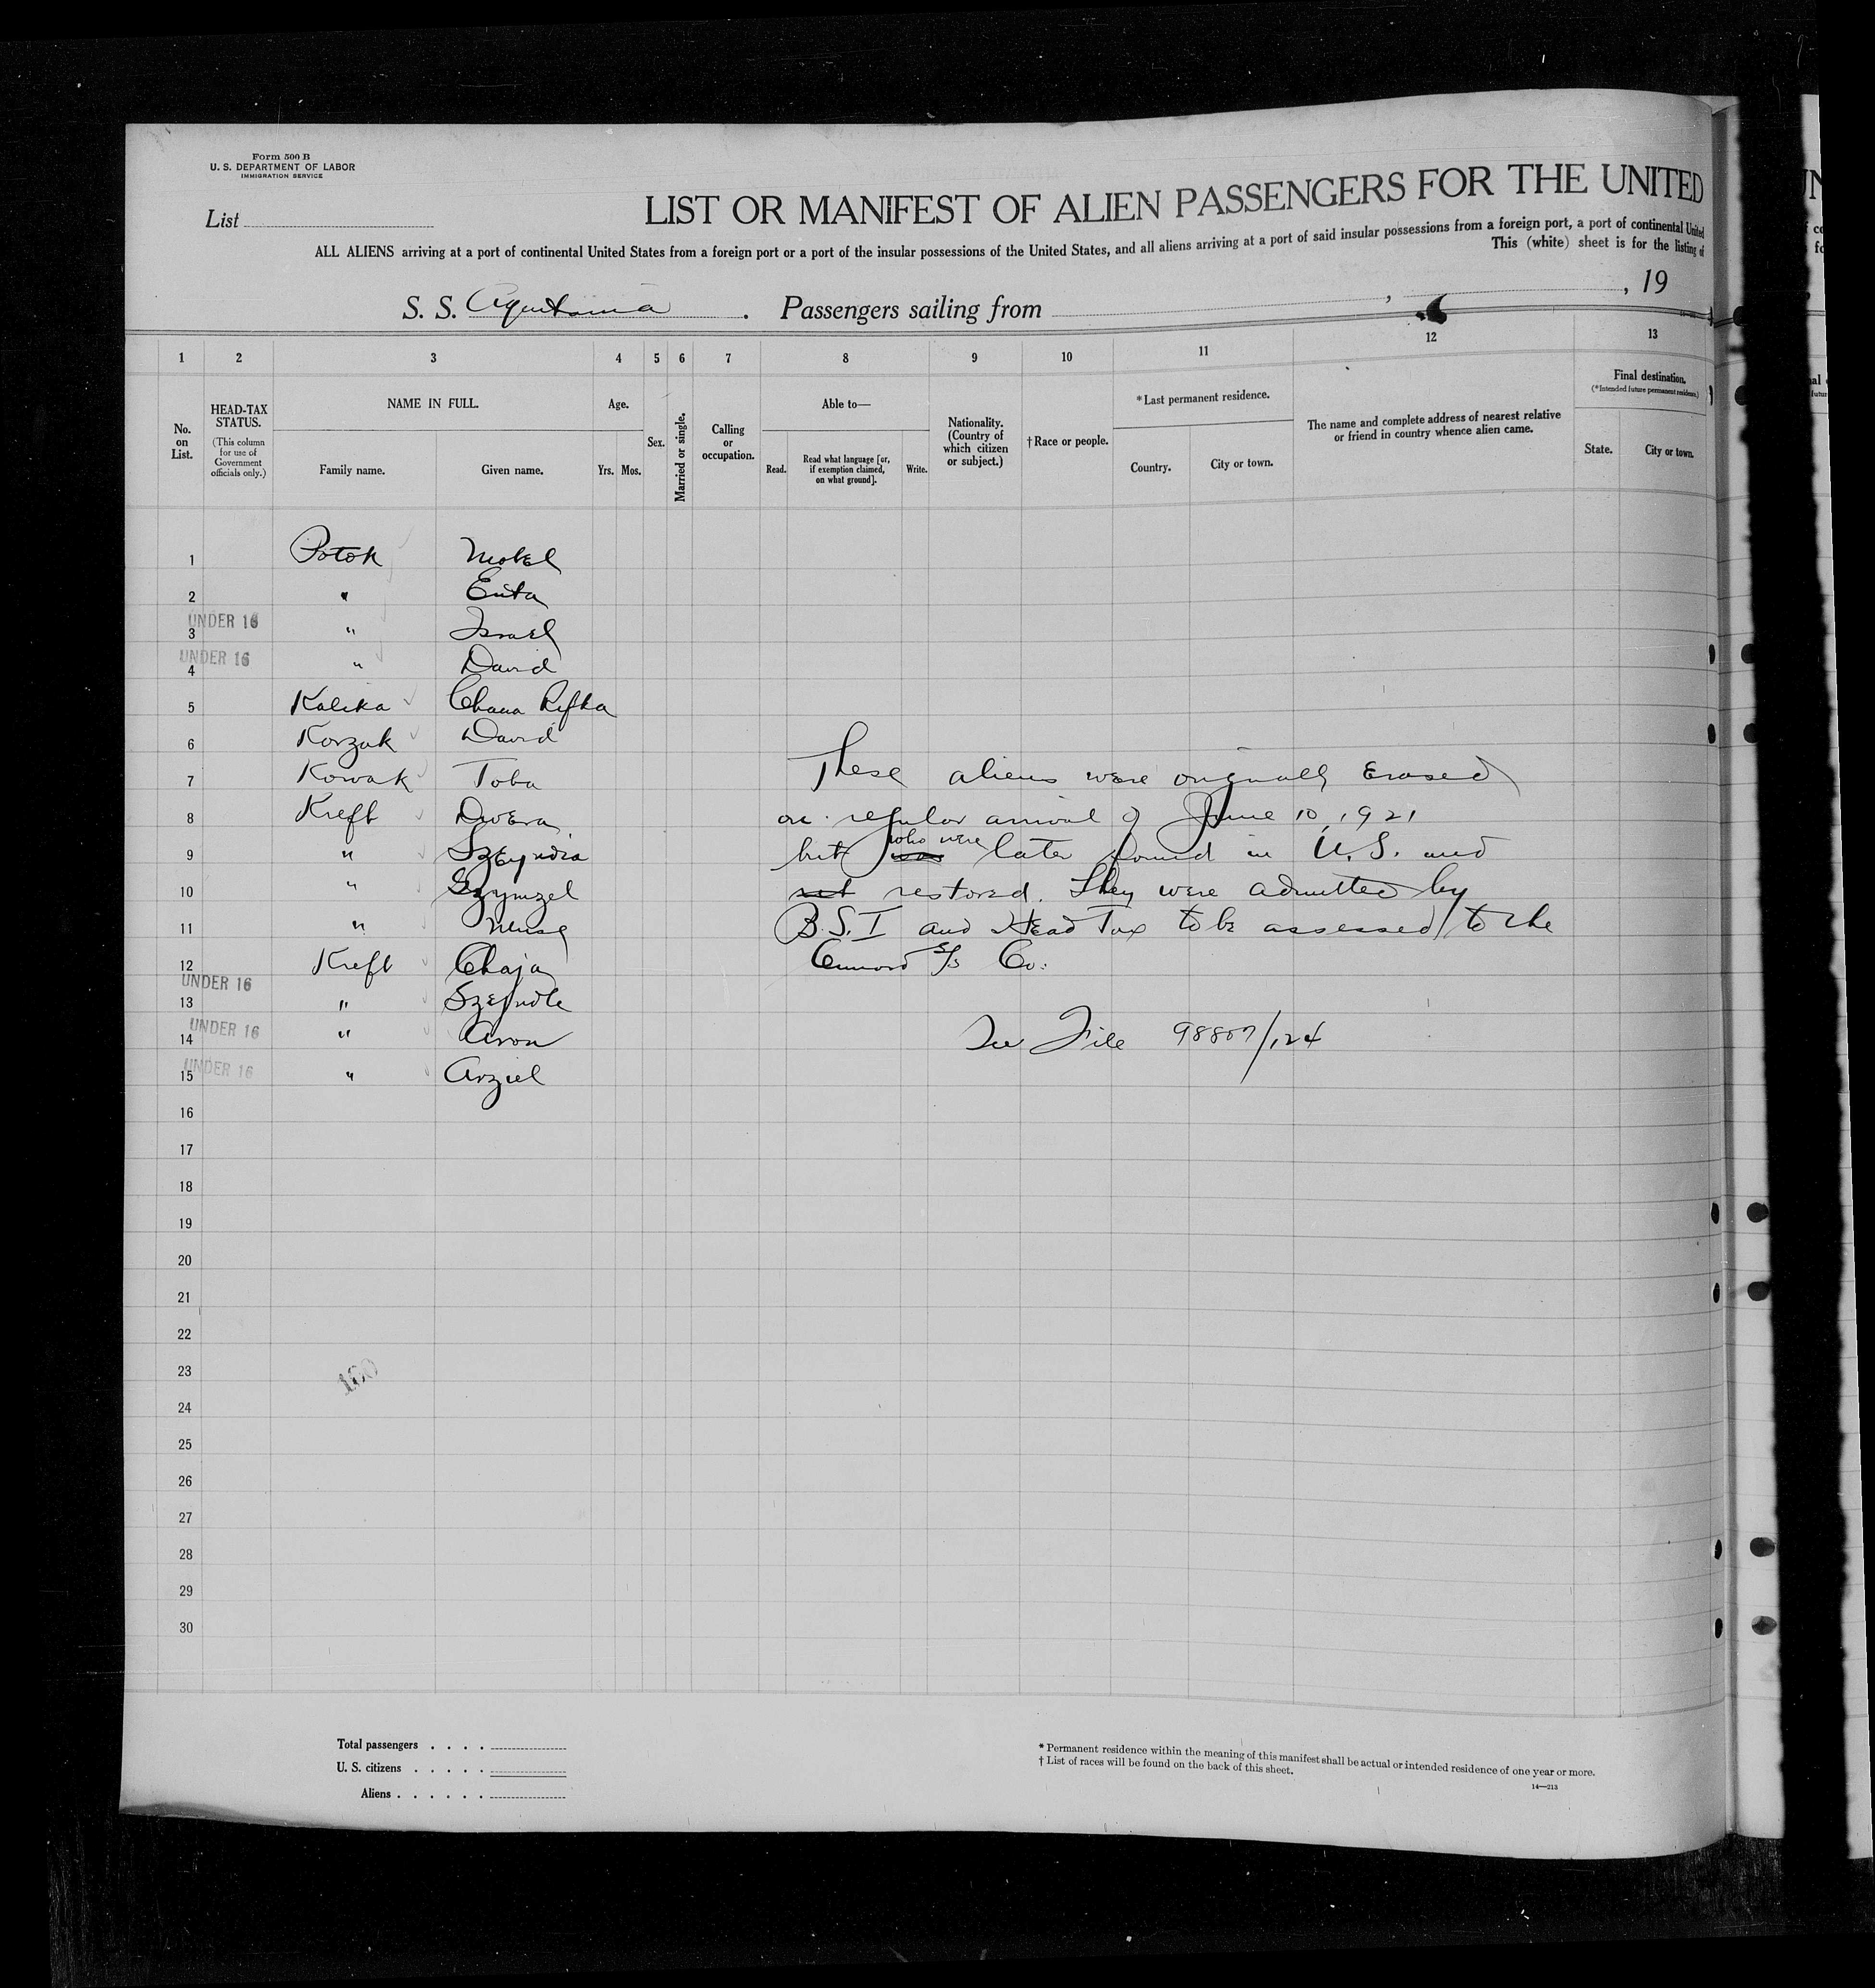 Form 500 B
U. S. DEPARTMENT OF LABOR
IMMIGRATION SERVICE
List
LIST OR MANIFEST OF ALIEN PASSENGERS FOR THE UNITED
ALL ALIENS arriving at a port of continental United States from a foreign port or a port of the insular possessions of the United States, and all aliens arriving at a port of said insular possessions from a foreign port, a port of continental United
This (white) sheet is for the listing of
S. S. Aquitania . Passengers sailing from , , 19
1 2 3 4 5 6 7 8 9 10 11 12 13
No. on List.
HEAD-TAX STATUS.
(This column for use of Government officials only.)
NAME IN FULL.
Family name. Given name.
Age.
Yrs. Mos.
Sex.
Married or single.
Calling or occupation.
Able to—
Read. Read what language [or, if exemption claimed, on what ground]. Write.
Nationality. (Country of which citizen or subject.)
†Race or people.
*Last permanent residence.
Country. City or town.
The name and complete address of nearest relative or friend in country whence alien came.
Final destination.
(*Intended future permanent residence.)
State. City or town.
1 Potok Motel
2 " Enta
UNDER 16
3 " Israel
UNDER 16
4 " David
5 Kalika Chana Rifka
6 Korzuk David
7 Kowak Toba
8 Kreft Dwera
9 "
10 "
11 "
12 Kreft Chaja
UNDER 16
13 " Szejndle
UNDER 16
14 " Aron
UNDER 16
15 " Arziel
These aliens were originally Erased
on regular arrival of June 10, 1921
but was who were later found in U.S. and
not restored. They were admitted by
B.S.I and Head Tax to be assessed to the
Cunard S/S Co:
See File 98807/124
16
17
18
19
20
21
22
23
100
24
25
26
27
28
29
30
Total passengers . . . .
U. S. citizens . . . . .
Aliens . . . . . .
* Permanent residence within the meaning of this manifest shall be actual or intended residence of one year or more.
† List of races will be found on the back of this sheet.
14—213